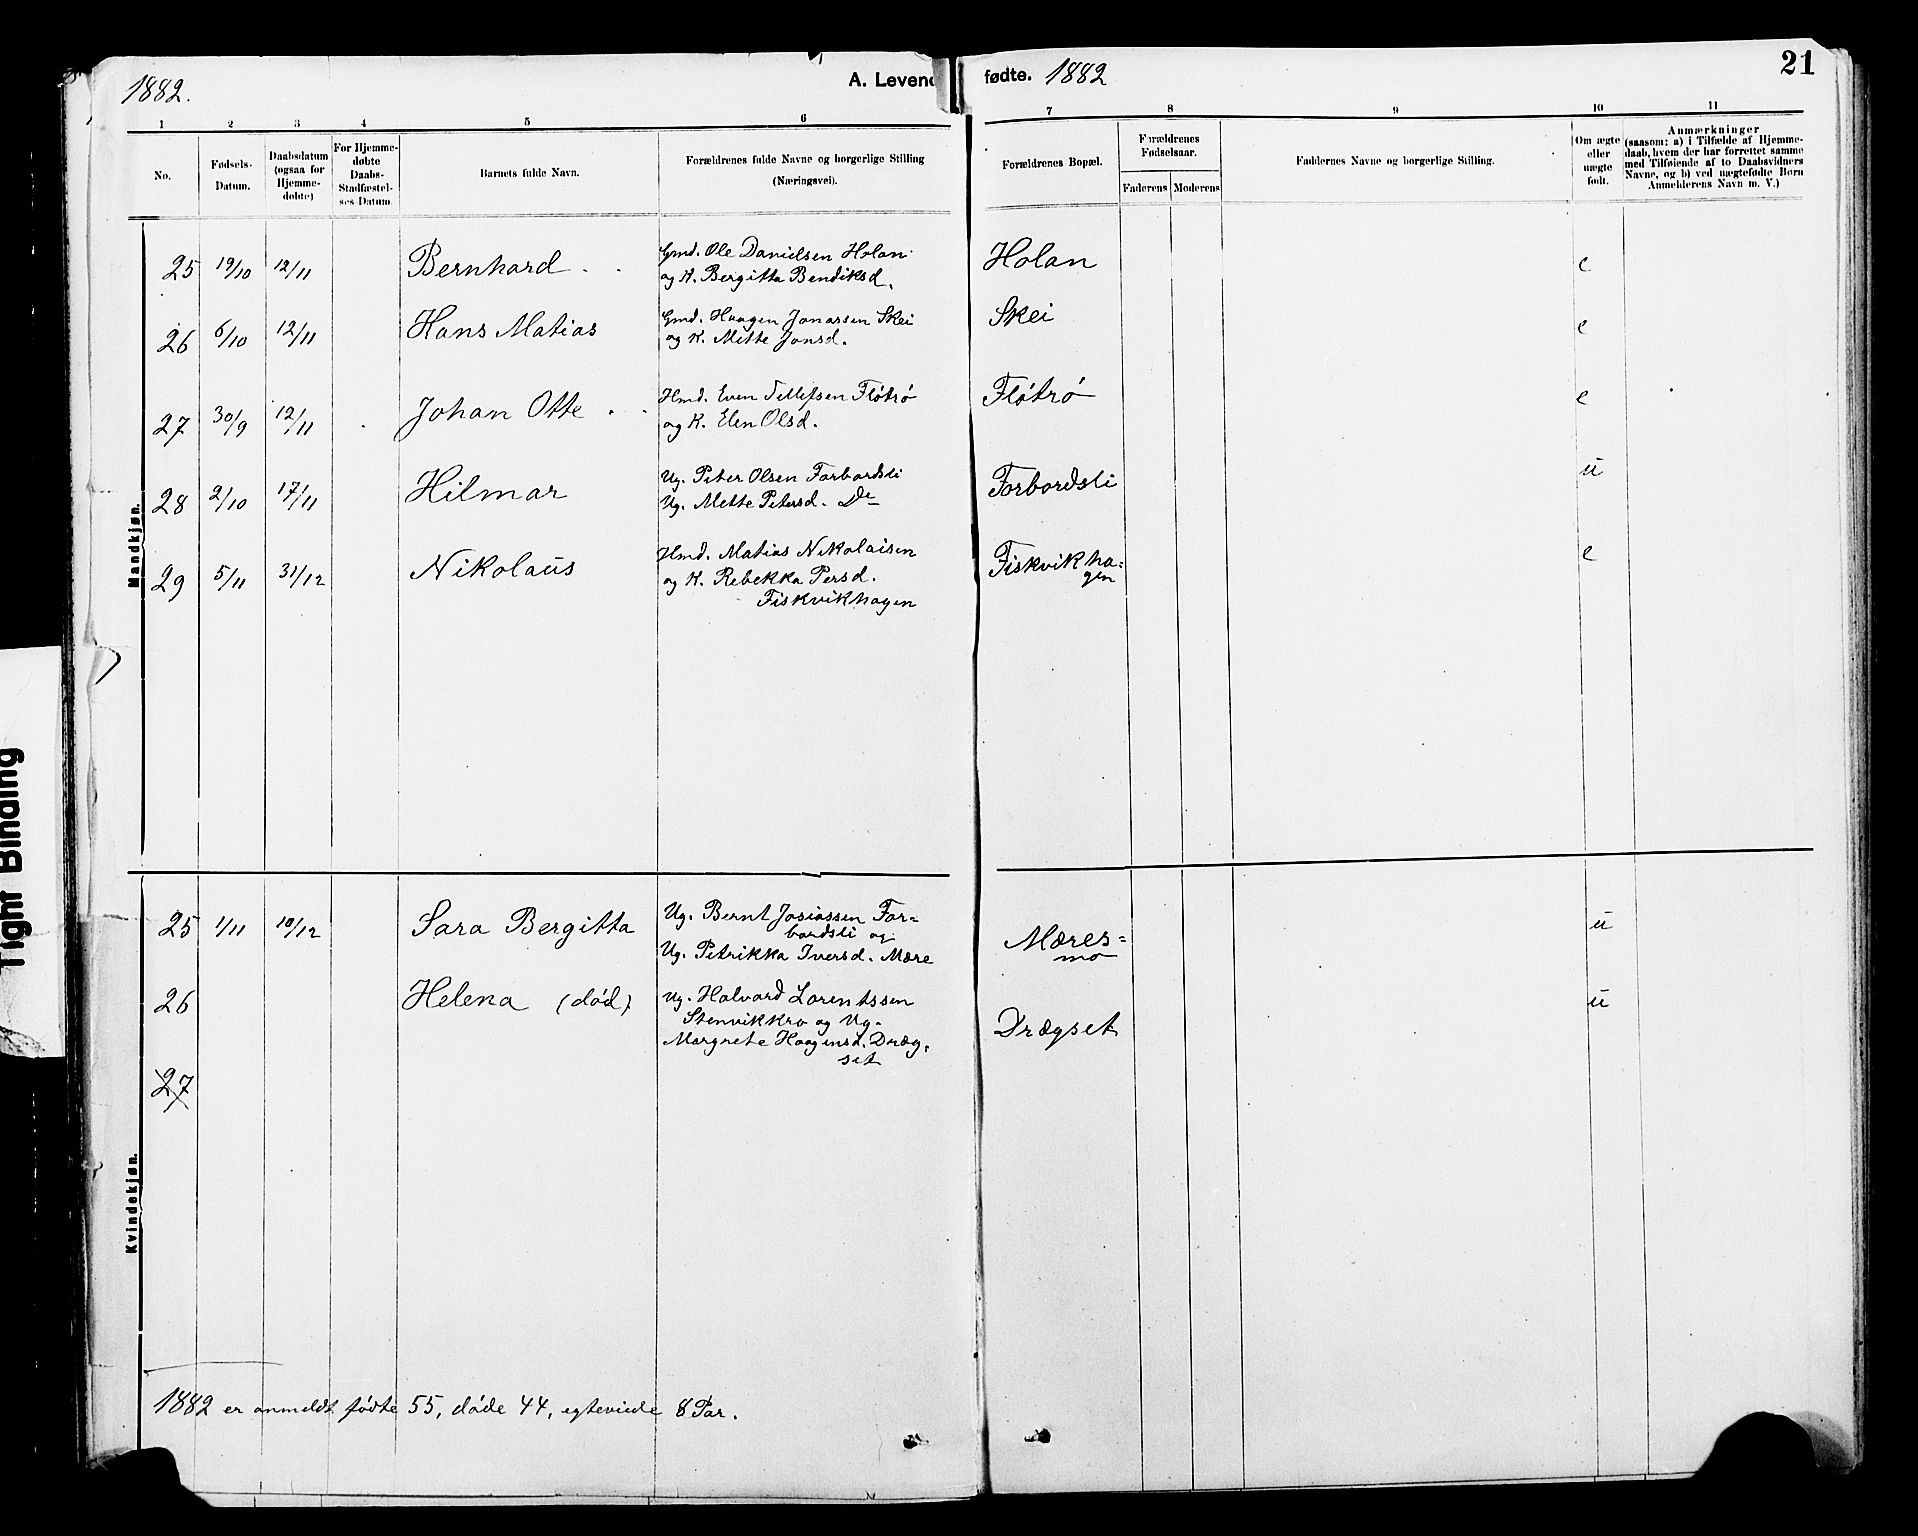 1882.
A. Levend
fødte. 1882
21
1 2 3 4 5 6 7 8 9 10 11
No.
Fødsels-
Datum.
Daabsdatum
(ogsaa for
Hjemme-
døbte)
For Hjemme-
døbte
Daabs-
Stadfæstel-
ses Datum.
Barnets fulde Navn.
Forældrenes fulde Navne og borgerlige Stilling
(Næringsvei).
Forældrenes Bopæl.
Forældrenes
Fødselsaar.
Faderens Moderens
Faddernes Navne og borgerlige Stilling.
Om ægte
eller
uægte
født.
Anmærkninger
(saasom: a) i Tilfælde af Hjemme-
daab, hvem der har forrettet samme
med Tilføiende af to Daabsvidners
Navne, og b) ved uægtefødte Børn
Anmelderens Navn m. V.)
Mandkjøn.
25 19/10 12/11 Bernhard Gmd. Ole Danielsen Holan Holan e
og K. Bergitta Bendiksd.
26 6/10 12/11 Hans Matias Gmd. Haagen Jonassen Skei Skei e
og K. Mette Jonsd.
27 30/9 12/11 Johan Otte Hmd. Even Tellefsen Fløtrø Fløtrø e
og K. Elen Olsd.
28 2/10 17/11 Hilmar Ug. Peter Olsen Forbordsli Forbordsli u
Ug. Mette Petersd. Do
29 5/11 31/12 Nikolaus Hmd. Matias Nikolaisen Fiskvikha= e
og K. Rebekka Persd. gen
Fiskvikhagen
Kvindekjøn.
25 1/11 10/12 Sara Bergitta Ug. Bernt Josiassen For= u
bordsli og Mæres=
Ug. Petrikka Iversd. Mære mo
26 Helena (død) Ug. Halvard Lorentssen u
Stenvikkro og Ug. Drægset
Margrete Haagensd. Dræg.
set
27
1882 er anmeldt fødte 55, døde 44, egteviede 8 Par.
Tight Binding